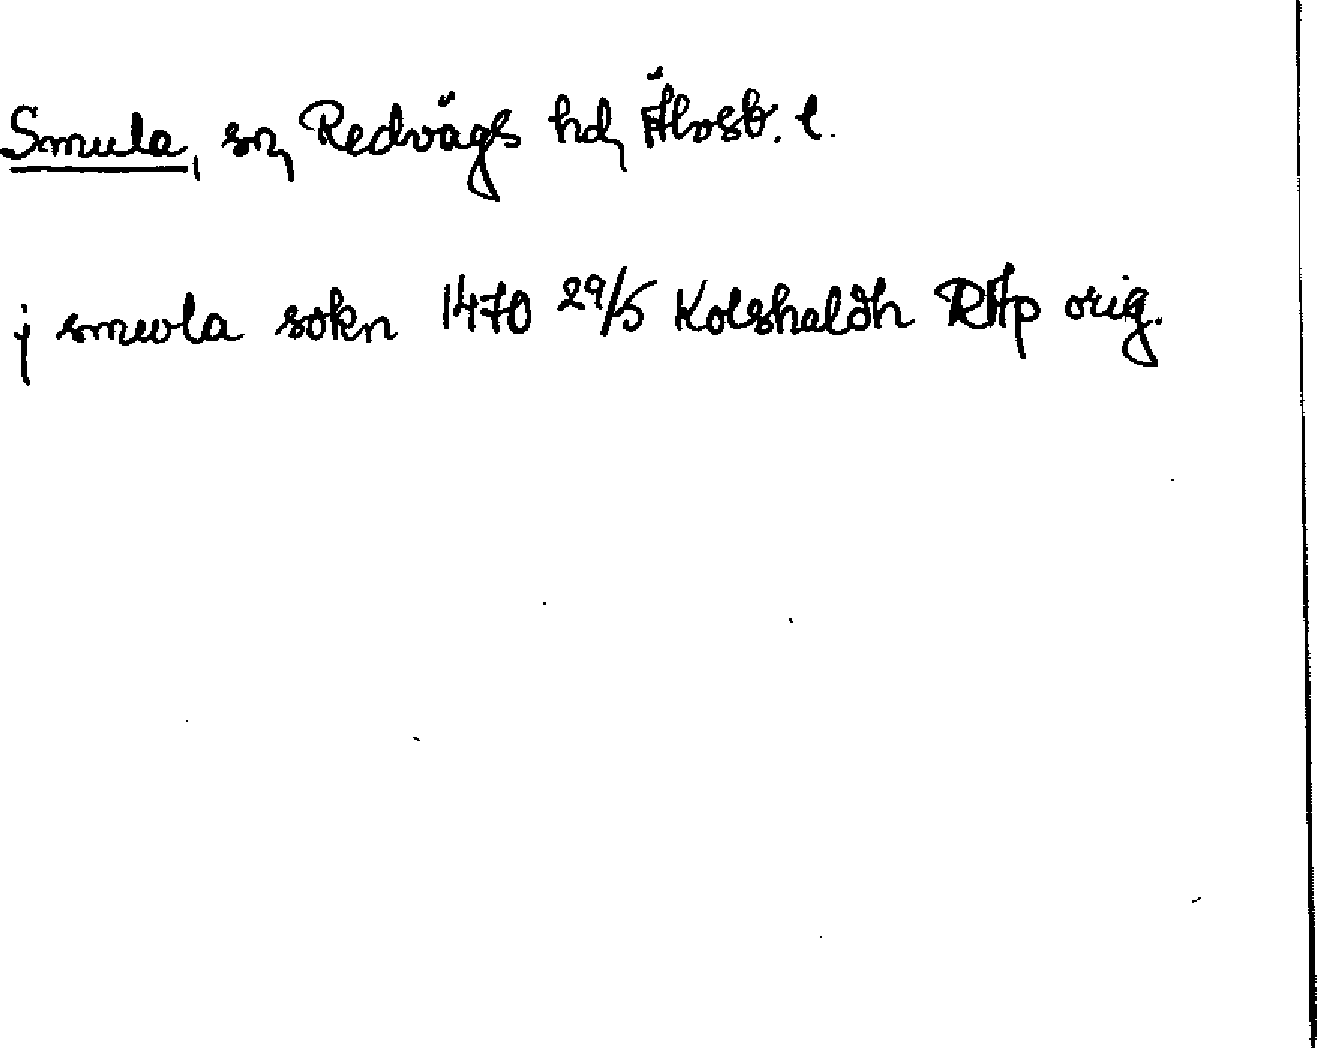 Smula, sn, Redvägs hd, Älvsb. l.
j smwla sokn 1470 29/5 Kolshaldh RAp orig.